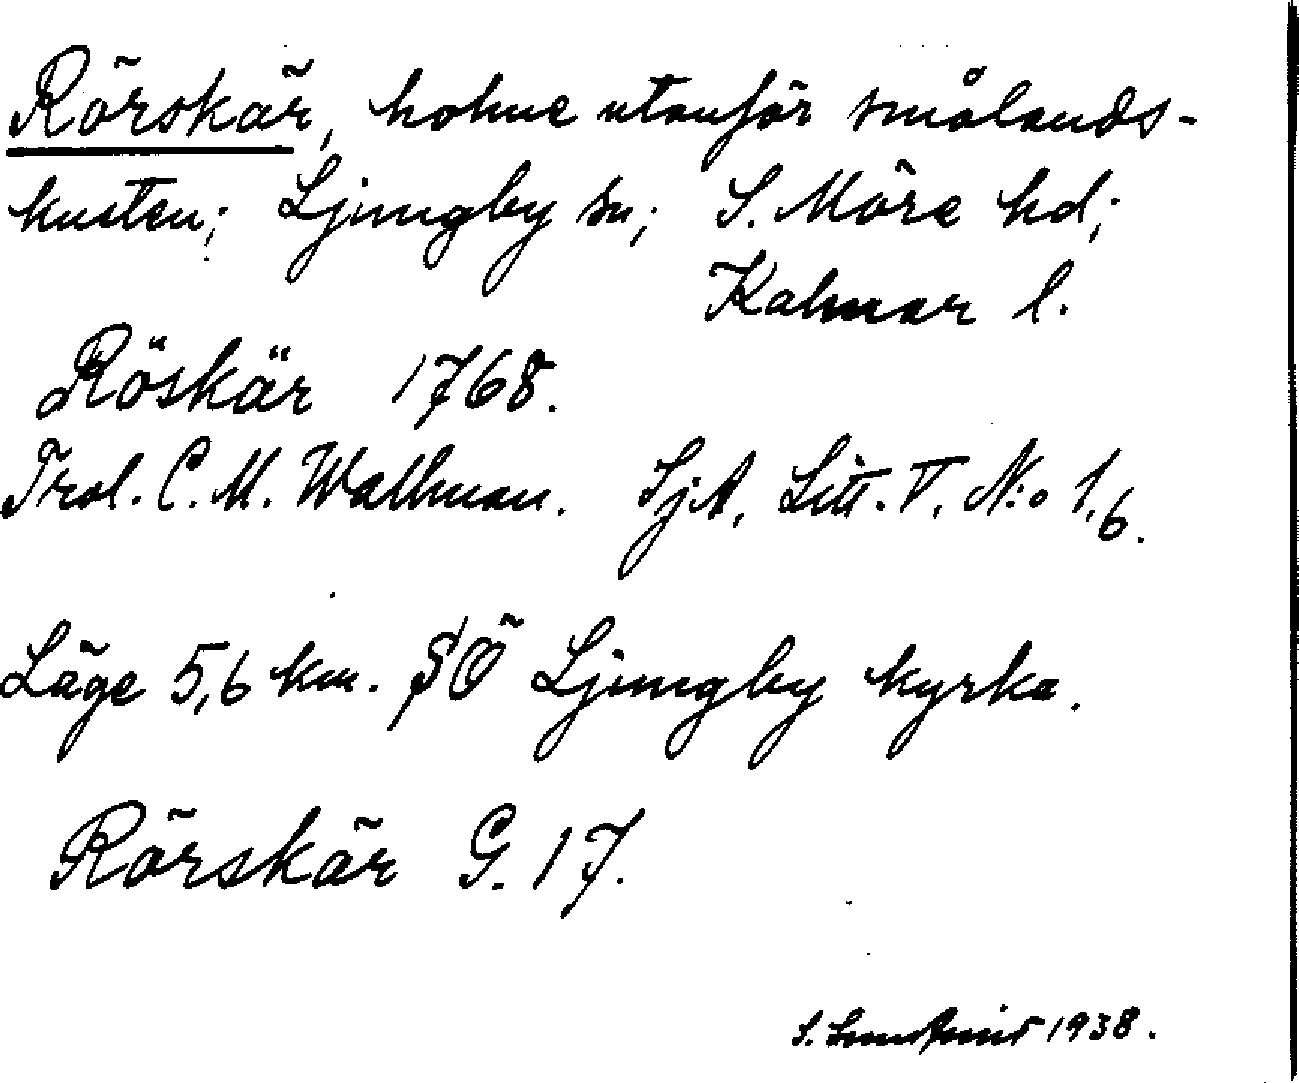 Rörskär, holme utanför smålands-
kusten; Ljungby sn; S. Möre hd;
Kalmar l.
Röskär 1768.
Trol. C. M. Wallman. SjA, Litt. T. N:o 1,6.
Läge 5,6 km. SÖ Ljungby kyrka.
Rörskär G. 17.
S. 1938.